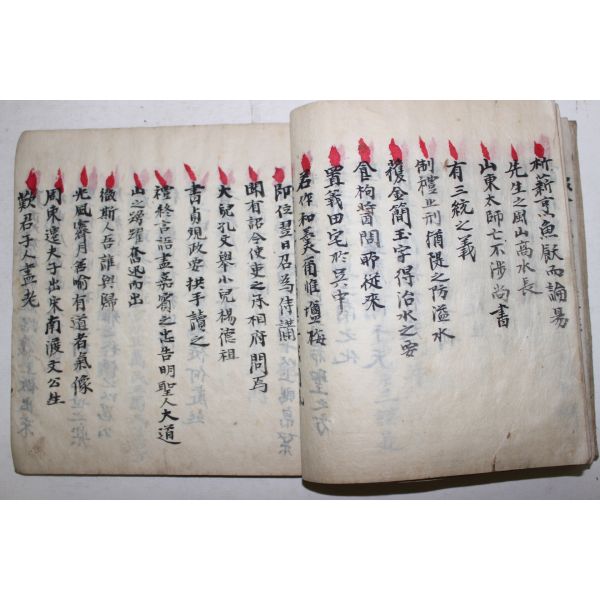 析薪烹魚厭而論易
先生之風山高水長
山東太師亡不涉尚書
有三統之義
制禮止刑猶隄之防溢水
獲金簡玉字得治水之要
食枸醬問所從來
置義田宅於吳中
若作和羹爾惟塩梅
即位翌日召為侍講
聞有詔令使吏之泳相府問焉
大兒孔文舉小兒楊德祖
書貞觀政要拱手讀之
禮終言語盡嘉賓之忠告明聖人大道
山之踴躍奮迅而出
微斯人吾誰與歸
光風霽月善喻有道者氣像
周東遷夫子出宋南渡文公生
歎君子人盡老